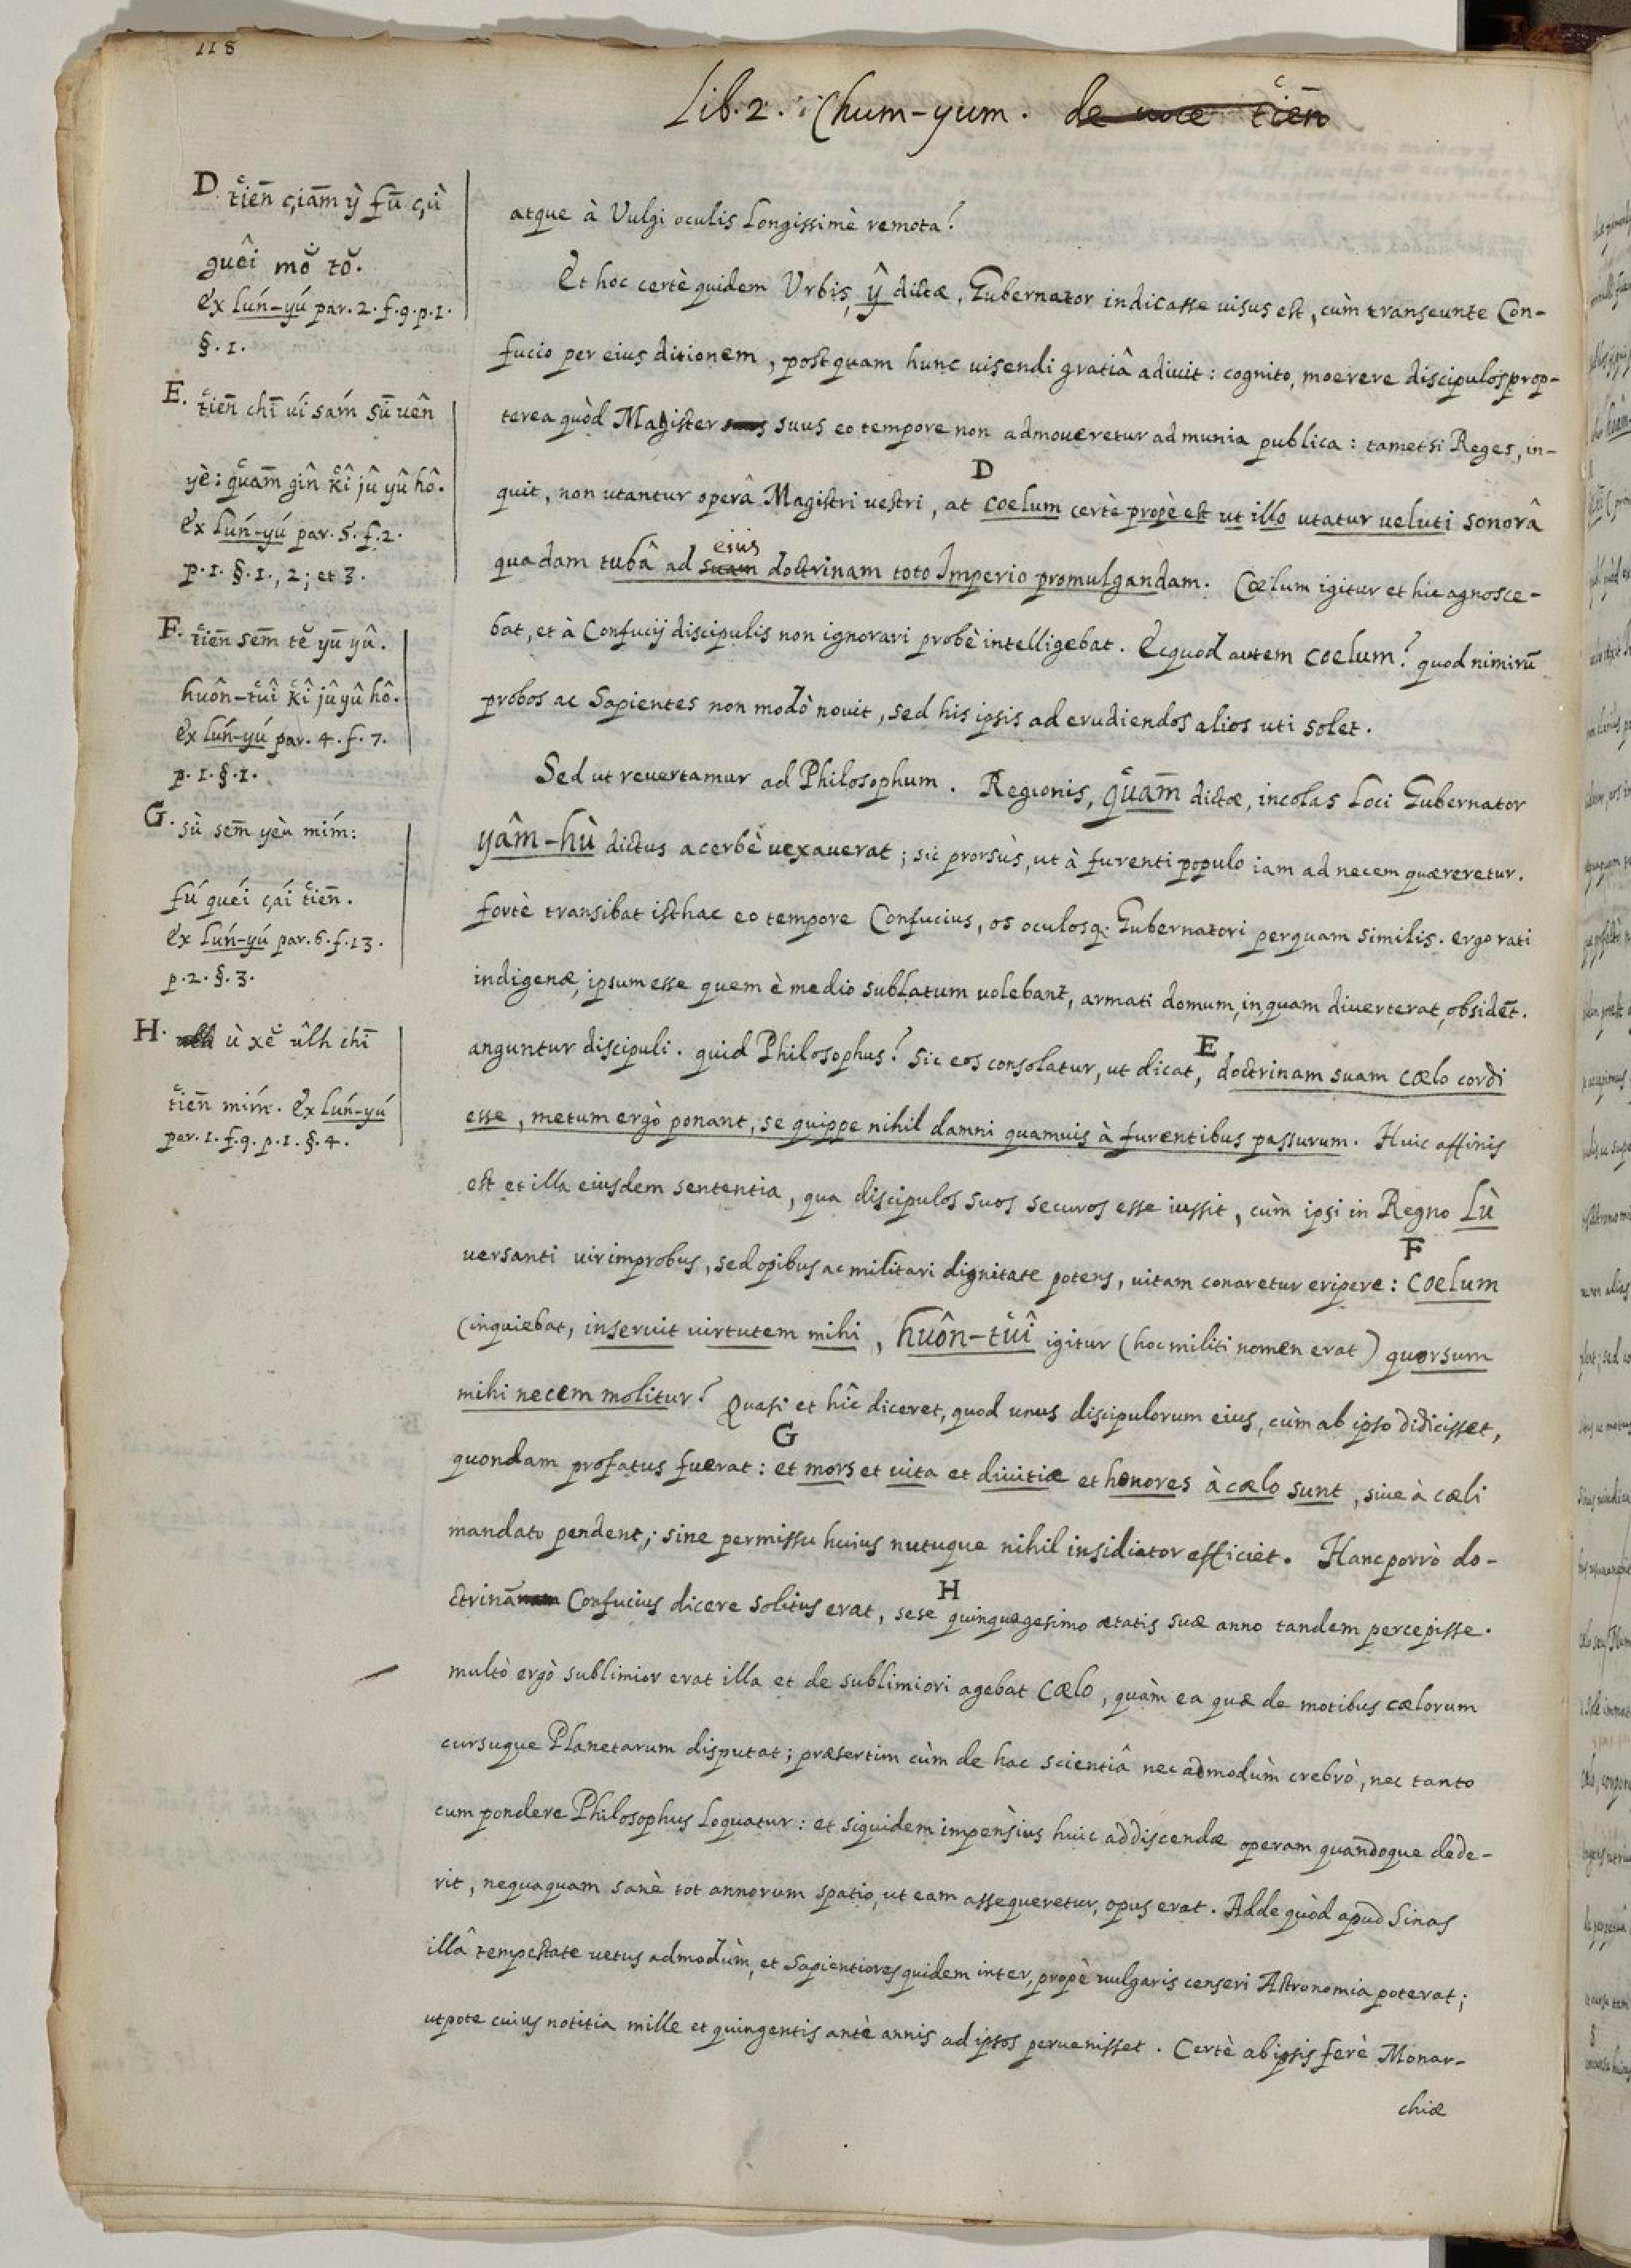 118
Lib. 2. Chum-yum. de voce tiēn
D. tiēn çiām ỳ fū çù
guêi mǒ tǒ.
Ex lún-yú par. 2. f. 9. p. 1.
§. 1.
E. tiēn chī uí sám sū uên
yè: quām gîn kî jû yû hô.
Ex lún-yú par. 5. f. 2.
p. 1. §. 1., 2; et 3.
F. tiēn sēm tě yū yû.
huôn-tuî kî jû yû hô.
Ex lún-yú par. 4. f. 7.
p. 1. §. 1.
G. sù sēm yèu mím:
fú quéi çái tiēn.
Ex lún-yú par. 6. f. 13.
p. 2. §. 3.
H. ù xě ûlh chī
tiēn mím. Ex lún-yú
par. 1. f. 9. p. 1. §. 4.
atque à Vulgi oculis longissimè remota?
Et hoc certè quidem Urbis, ŷ dictæ, Gubernator indicasse uisus est, cùm transeunte Con-
fucio per eius ditionem, postquam hunc uisendi gratiâ adiuit: cognito, moerere discipulos prop-
terea quòd Magister suus suus eo tempore non admoueretur ad munia publica: tametsi Reges, in-
D
quit, non utantur operâ Magistri uestri, at coelum certè propè est ut illo utatur ueluti sonorâ
eius
quadam tubâ ad suam doctrinam toto Imperio promulgandam. Cœlum igitur et hic agnosce-
bat, et à Confucij discipulis non ignorari probè intelligebat. Ecquod autem coelum? quod nimirū
probos ac Sapientes non modò nouit, sed his ipsis ad erudiendos alios uti solet.
Sed ut reuertamur ad Philosophum. Regionis, quām dictæ, incolas Loci Gubernator
yâm-hù dictus acerbè uexauerat; sic prorsùs, ut à furenti populo iam ad necem quæreretur.
fortè transibat isthac eo tempore Confucius, os oculosq. Gubernatori perquam similis. ergo rati
indigenæ, ipsum esse quem è medio sublatum uolebant, armati domum, in quam diuerterat, obsidēt.
E
anguntur discipuli. quid Philosophus? sic eos consolatur, ut dicat, doctrinam suam cœlo cordi
esse, metum ergò ponant, se quippe nihil damni quamuis à furentibus passurum. Huic affinis
est et illa eiusdem sententia, qua discipulos suos securos esse iussit, cùm ipsi in Regno Lù
F
uersanti uir improbus, sed opibus ac militari dignitate potens, uitam conaretur eripere: Coelum
(inquiebat, inseruit uirtutem mihi, huôn-tuî igitur (hoc militi nomen erat) quorsum
mihi necem molitur? Quasi et hîc diceret, quod unus discipulorum eius, cùm ab ipso didicisset,
G
quondam profatus fuerat: et mors et uita et diuitiæ et honores à cœlo sunt, siue à cœli
mandato pendent; sine permissu huius nutuque nihil insidiator efficiet. Hanc porrò do-
H
ctrinā Confucius dicere solitus erat, sese quinquagesimo ætatis suæ anno tandem percepisse.
multò ergò sublimior erat illa et de sublimiori agebat Cœlo, quàm ea quæ de motibus cœlorum
cursuque Planetarum disputat; præsertim cùm de hac scientiâ nec admodùm crebrò, nec tanto
cum pondere Philosophus loquatur: et siquidem impènsius huic addiscendæ operam quandoque dede-
rit, nequaquam sanè tot annorum spatio, ut eam assequeretur, opus erat. Adde quòd apud Sinas
illâ tempestate uetus admodùm, et Sapientiores quidem inter, propè uulgaris censeri Astronomia poterat;
utpote cuius notitia mille et quingentis antè annis ad ipsos peruenisset. Certè ab ipsis ferè Monar-
chiæ